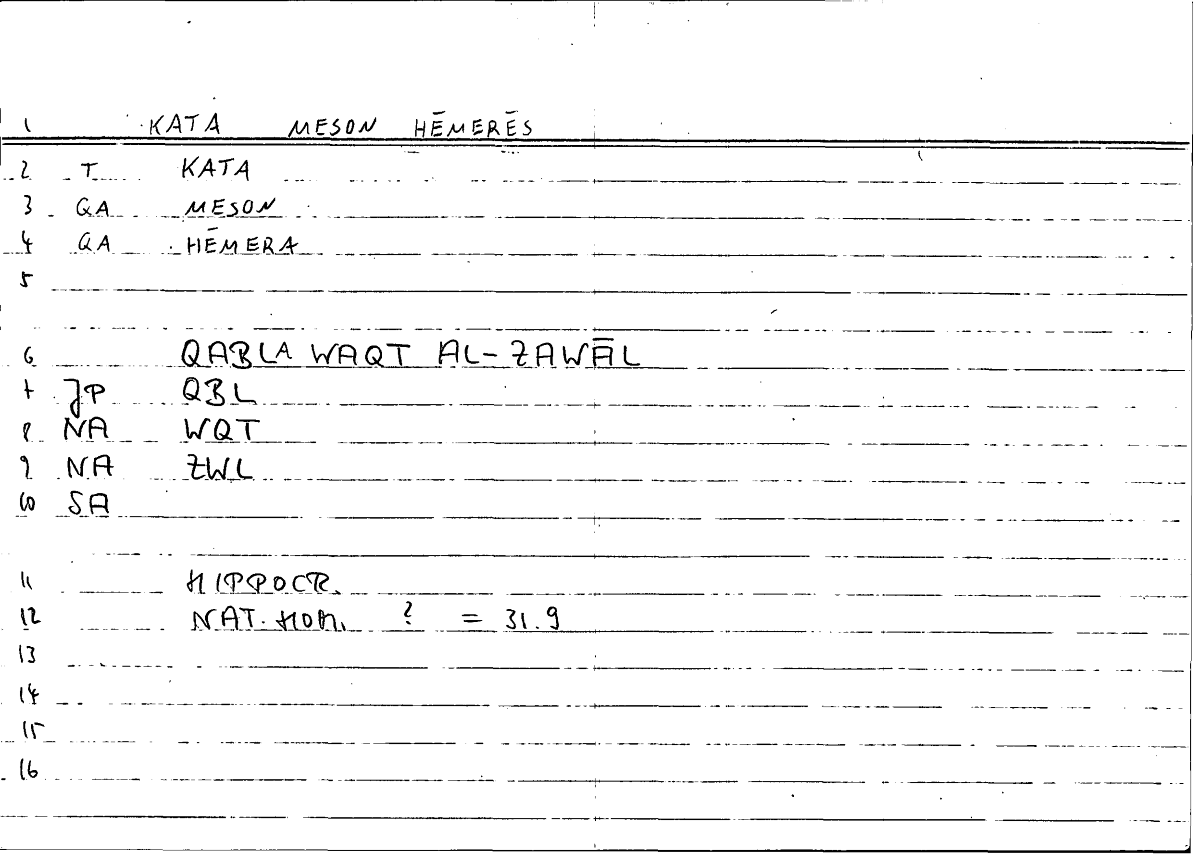 1 KATA MESON HĒMERĒS
2 T KATA
3 QA MESON
4 QA HĒMERA
5
6 QABLA WAQT AL-ZAWĀL
7 JP QBL
8 NA WQT
9 NA ZWL
10 SA
11 HIPPOCR.
12 NAT. HOM. ? = 31.9
13
14
15
16